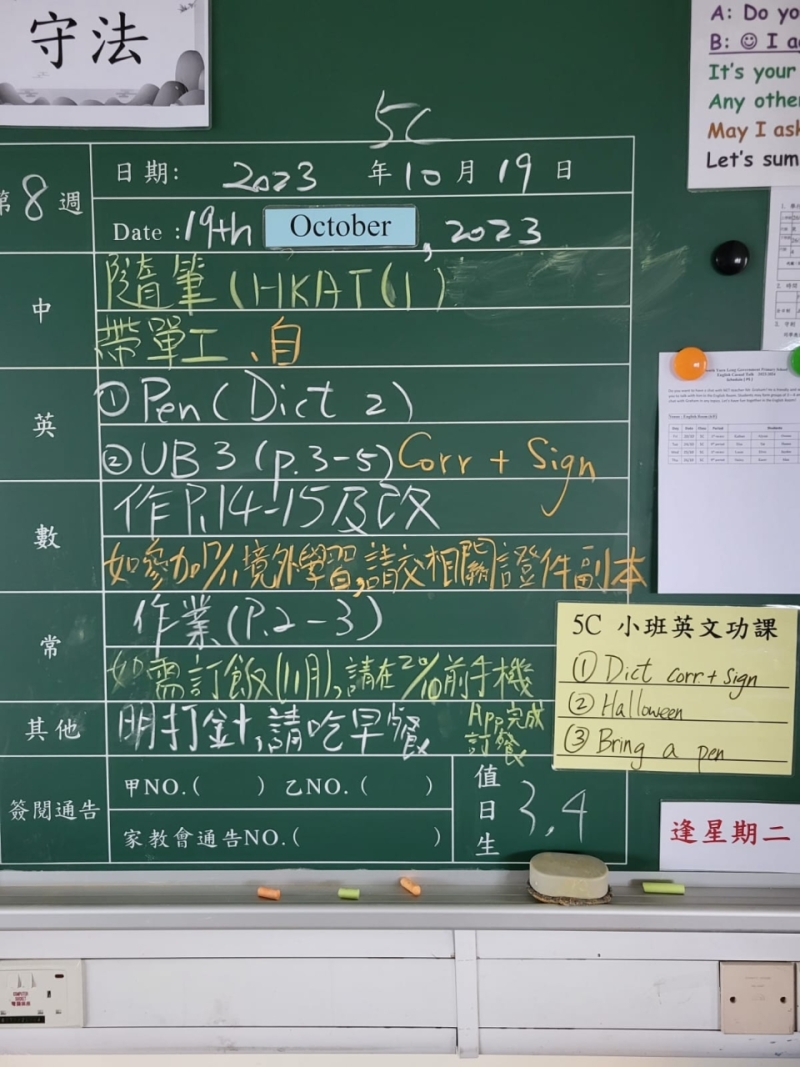 守法
A: Do yo
B: ☺ I a
It's your
Any othe
May I ask
Let's sum
5C
第8週
日期: 2023 年10月19日
Date : 19th October, 2023
中
隨筆(HKAT(1)
帶單工、自
英
① Pen (Dict 2)
② UB3 (p.3-5) Corr + Sign
數
作P.14-15及改
如參加 境外學習,請交相關證件副本
常
作業(P.2-3)
如需訂飯(11月),請在20/10前手機
App完成
訂餐
其他
明打針,請吃早餐
簽閱通告
甲NO.( ) 乙NO.( )
家教會通告NO.( )
值日生
3,4
5C 小班英文功課
① Dict corr + sign
② Halloween
③ Bring a pen
逢星期二